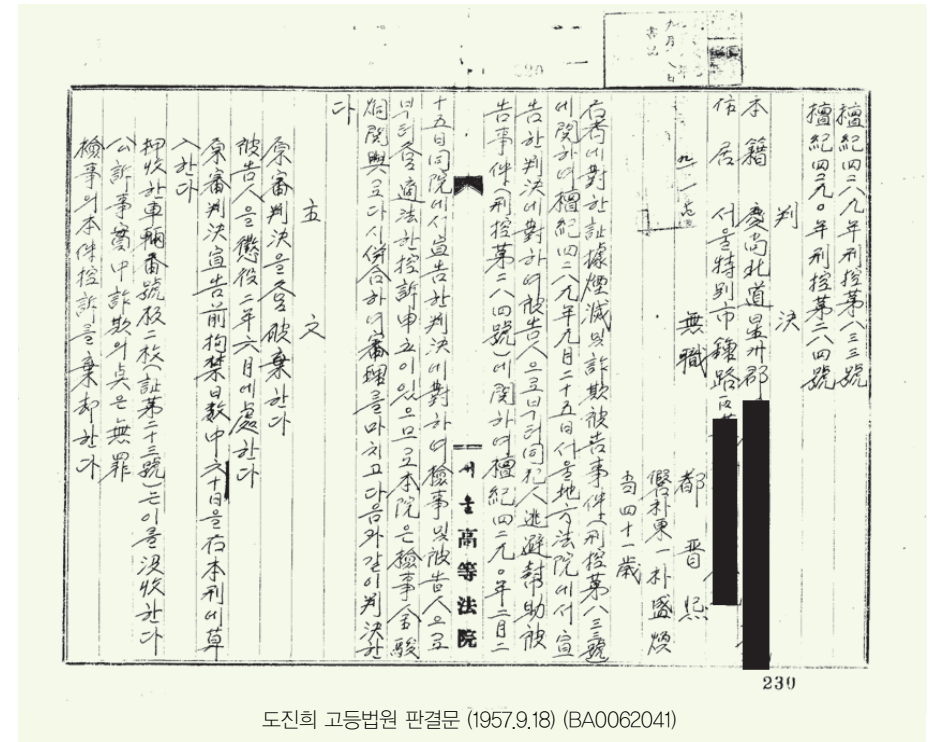 檀紀四二八九年刑控第八三三號
檀紀四二九〇年刑控第二八四號
判決
本籍 慶尚北道星州郡
住居 서울特別市鍾路區
無職 都晋熙
假朴東一朴盛煥
当四十一歲
右者에對한証據煙滅및詐欺被告事件(刑控第八三三號
에関하여檀紀四二八九年九月二十五日서울地方法院에서宣
告한判決에對하여被告人으로부터同犯人逃避幇助被
告事件(刑控第二八四號)에関하여檀紀四二九〇年二月二
서울高等法院
十五日同院에서宣告한判決에對하여檢事및被告人으로
부터各適法한控訴申立이있으므로本院은檢事
関與로다시併合하여審理를마치고다음과같이判決한
다
主文
原審判決을各破棄한다
被告人을懲役二年六月에處한다
原審判決宣告前拘禁日數中六十日을右本刑에算
入한다
押收한車輛番號板二枚(証第二十三號)는이를沒收한다
公訴事實中詐欺의点은無罪
檢事의本件控訴를棄却한다
230
도진희 고등법원 판결문 (1957.9.18) (BA0062041)